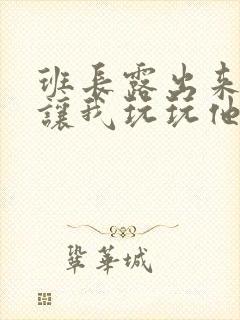 班長露出来
讓我玩玩他
鞏華城